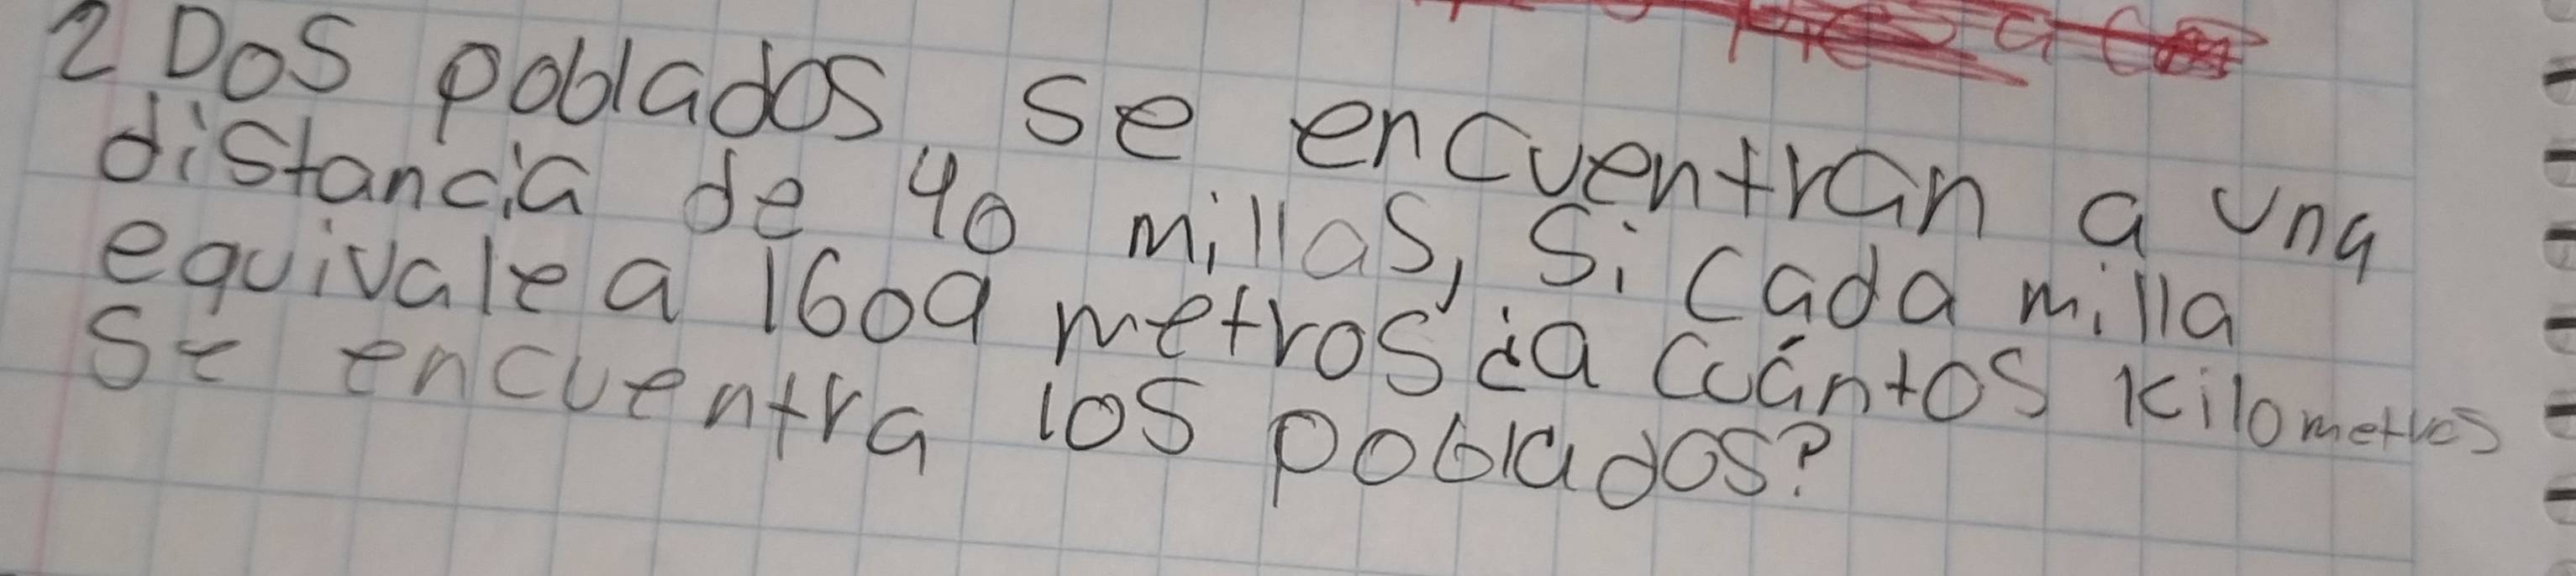 2 Dos poblados se encuentran a una
distancia de 40 millas, si cada milla
equivale a 1609 metros ¿a cuántos kilometros
se encuentra los poblados?